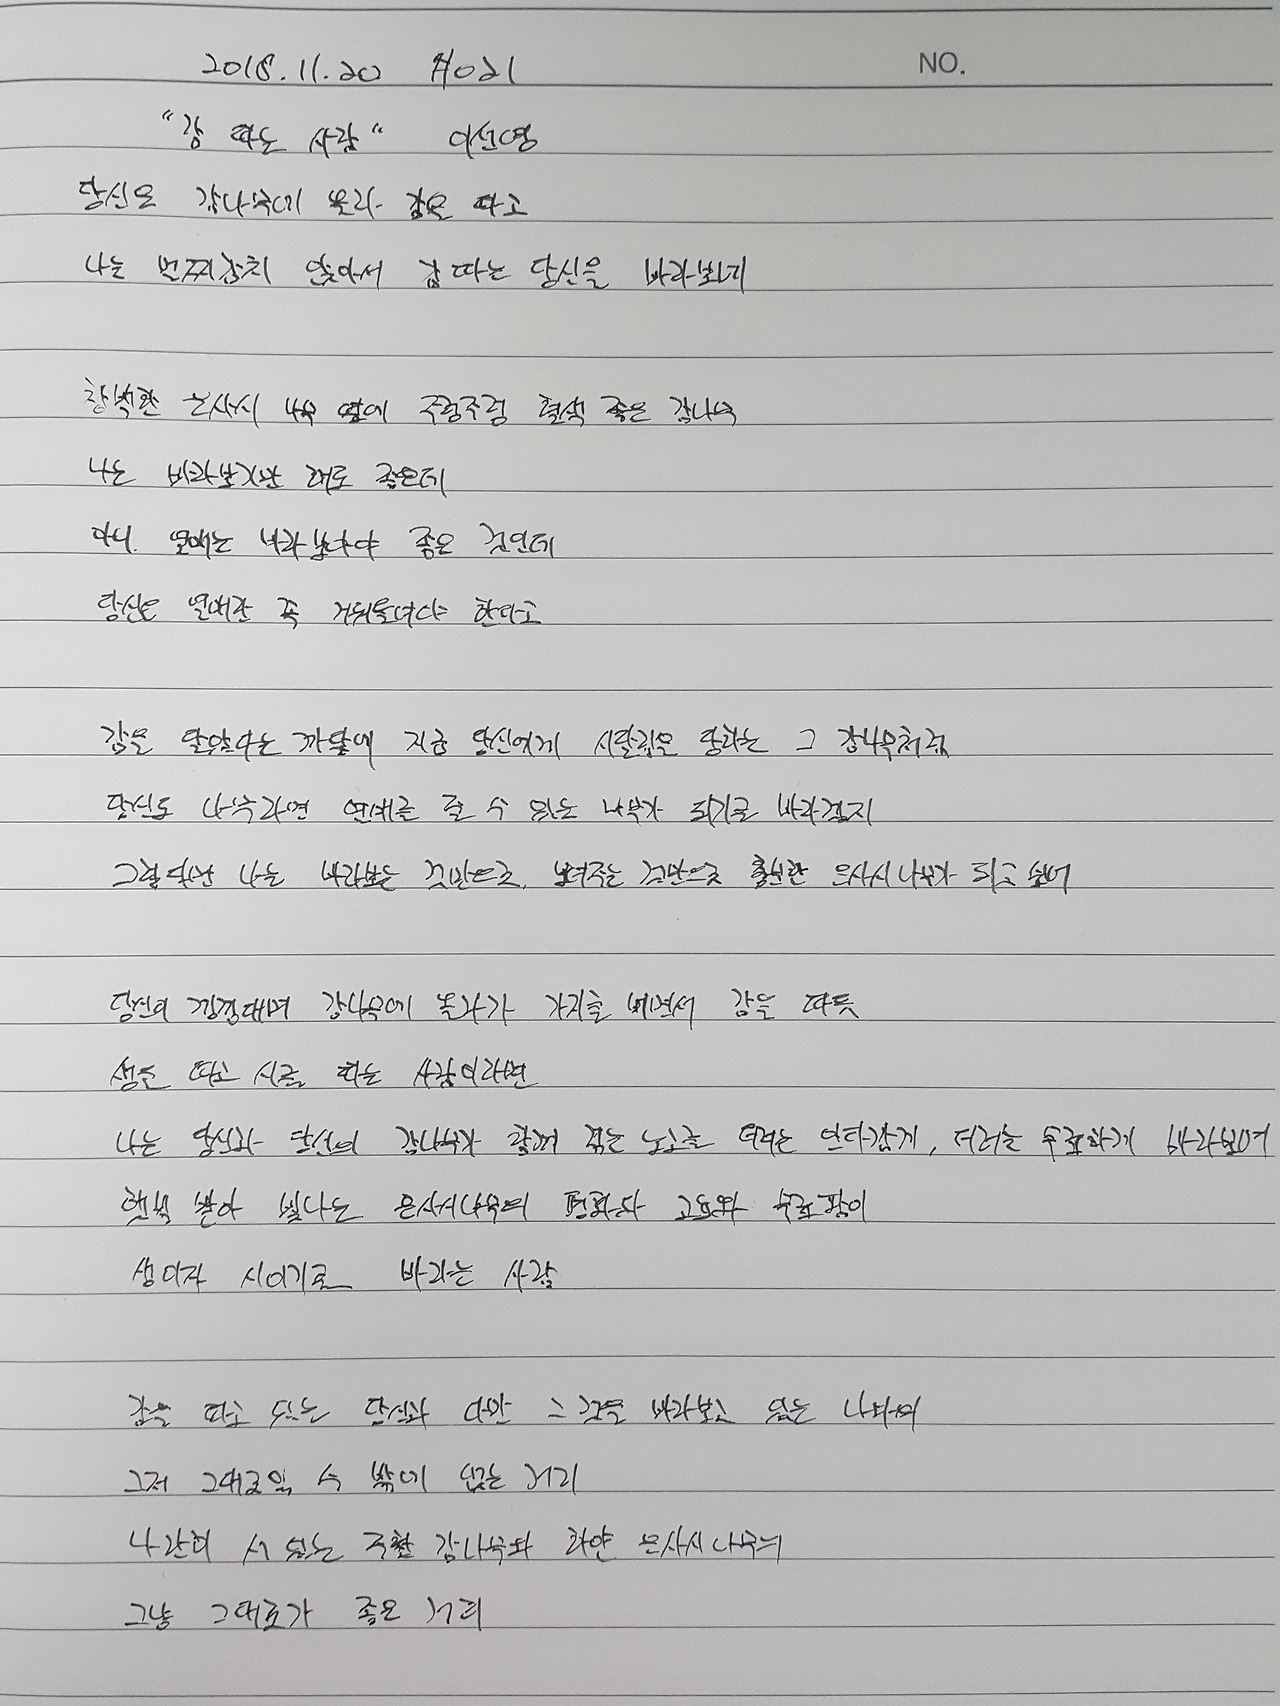 2018.11.20 #021
NO.
"감 따는 사람" 이선영
당신은 감나무에 올라 감을 따고
나는 먼찌감치 앉아서 감 따는 당신을 바라보네
창백한 은사시 나무 옆에 주렁주렁 혈색 좋은 감나무
나는 바라보기만 해도 좋은데
아니, 열매는 바라보아야 좋은 것인데
당신은 열매란 꼭 거둬들여야 한다고
감을 달았다는 까닭에 지금 당신에게 시달림을 당하는 그 감나무처럼
당신도 나무라면 열매를 줄 수 있는 나무가 되기를 바라겠지
그렇다면 나는 바라보는 것만으로, 보여주는 것만으로 충분한 은사시나무가 되고 싶어
당신이 낑낑대며 감나무에 올라가 가지를 베면서 감을 따듯
생을 따고 시를 따는 사람이라면
나는 당신과 당신의 감나무가 함께 겪는 노고를 더러는 안타깝게, 더러는 무료하게 바라보며
햇빛 받아 빛나는 은사시나무의 평화와 고요와 무료함이
생이자 시이기를 바라는 사람
감을 따고 있는 당신과 다만 그것을 바라보고 있는 나와의
그저 그대로일 수 밖에 없는 거리
나란히 서 있는 주황 감나무와 하얀 은사시나무의
그냥 그대로가 좋은 거리